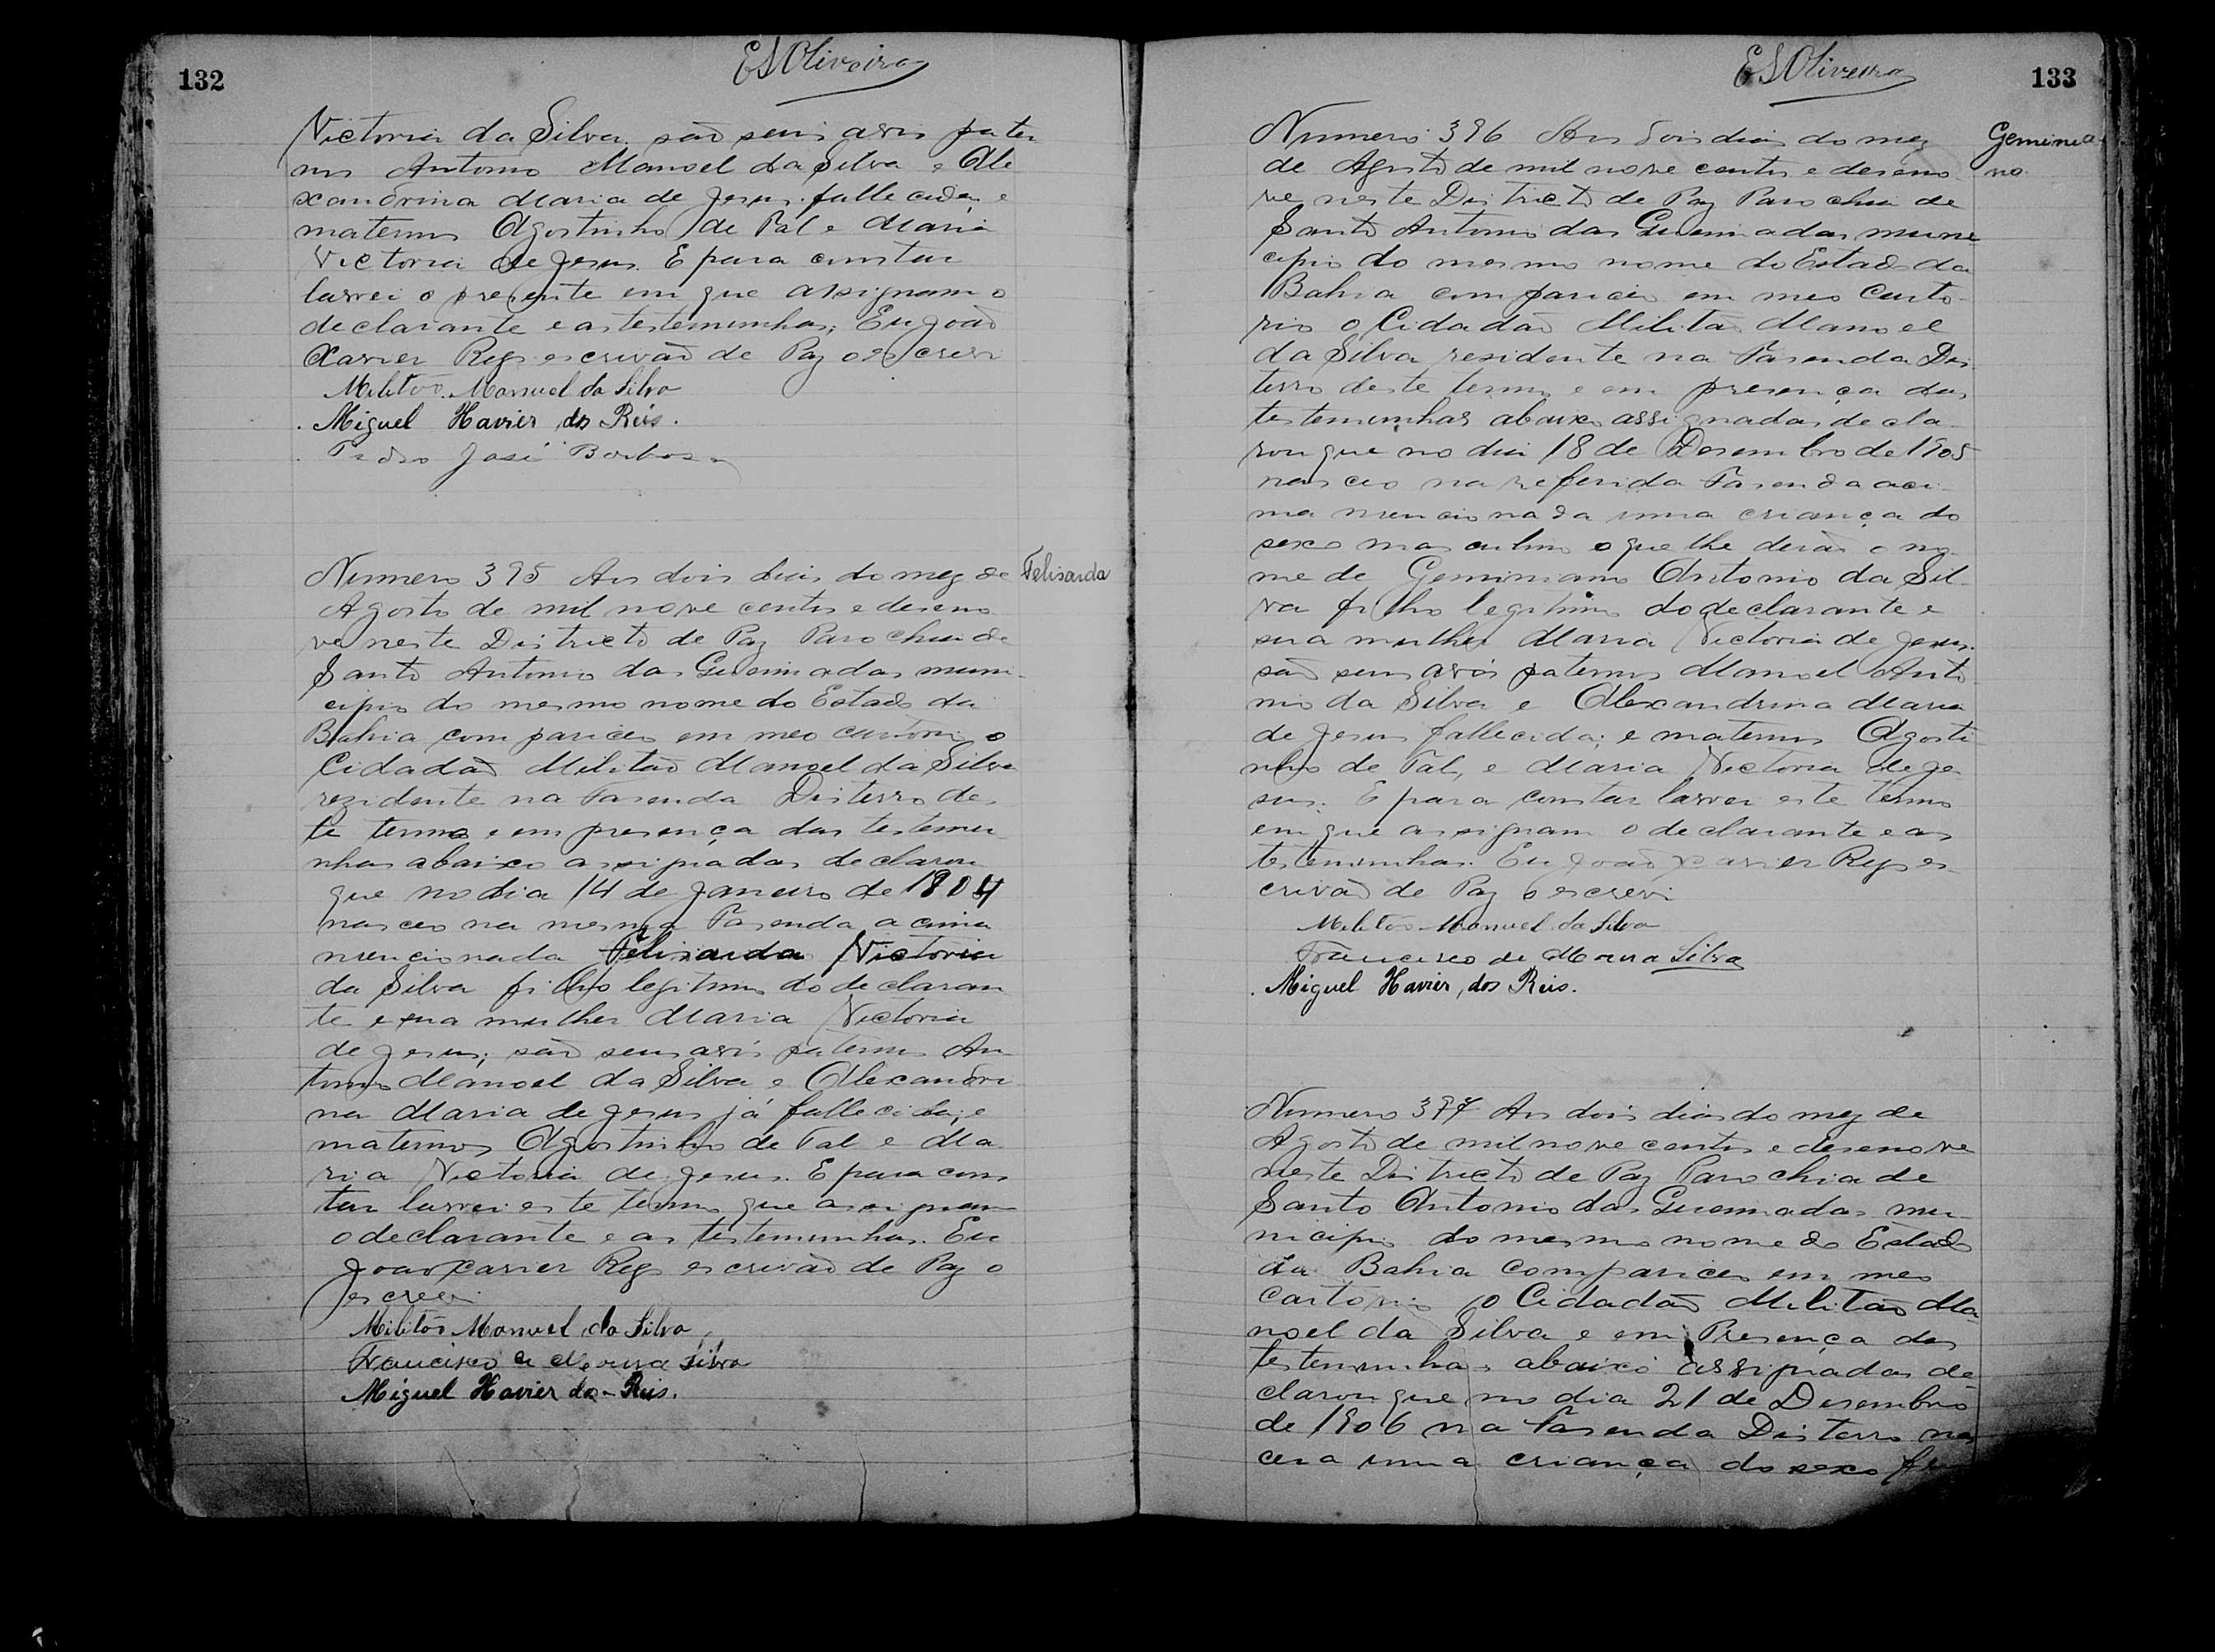 132
ESOliveira
Victoria da Silva. são seus avós pater
nos Antonio Manoel da Silva e Ale
xandrina Maria de Jesus. fallecida, e
maternos Agostinho de Tal e Maria
Victoria de Jesus. E para constar
lavrei o presente em que assignam o
declarante e as testemunhas; Eu João
Xavier Reys escrivão de Paz o escrevi
Militão Manuel da Silva
Miguel Havier dos Reis.
Pedro José Barbosa
Felisarda
Numero 395 Aos dois dias do mez de
Agosto de mil nove centos e deseno
ve neste Districto de Paz Parochia de
Santo Antonio das Queimadas muni-
cipio do mesmo nome do Estado da
Bahia compariceo em meo cartorio o
Cidadão Militão Manoel da Silva
rezidente na Fasenda Disterro des
te termo e em presença das testemu
nhas abaixo assignadas declarou
que no dia 14 de Janeiro de 1904
nasceo na mesma Fasenda acima
mencionada Felisarda Victoria
da Silva filho legitimo do declaran
te e sua mulher Maria Victoria
de Jesus; são seus avós paternos An
tonio Manoel da Silva e Alexandri
na Maria de Jesus já fallecida; e
maternos Agostinho de Tal e Ma
ria Victoria de Jesus. E para cons
tar lavrei este termo que assignam
o declarante e as testemunhas. Eu
João Xavier Reys escrivão de Paz o
escrevi
Militão Manuel da Silva
Francisco de Moura Silva
Miguel Havier dos Reis.
ESOliveira
133
Geminia
no
Numero 396 Aos dois dias do mez
de Agosto de mil nove centos e deseno
ve neste Districto de Paz Parochia de
Santo Antonio das Queimadas mune
cipio do mesmo nome do Estado da
Bahia compariceo em meo Carto-
rio o Cidadão Militão Manoel
da Silva residente na Fasenda Dis
terro deste termo e em presença das
testemunhas abaixo assignadas decla
rou que no dia 18 de Desembro de 1905
nasceo na referida Fasenda aci-
ma mencionada uma criança do
sexo masculino o que lhe derão o no-
me de Geminiano Antonio da Sil-
va filho legitimo do declarante e
sua mulher Maria Victoria de Jesus.
são seus avós paternos Manoel Anto
nio da Silva e Alexandrina Maria
de Jesus fallecida; e maternos Agosti
nho de Tal, e Maria Victoria de Je-
sus. E para constar lavrei este termo
em que assignam o declarante e as
testemunhas. Eu João Xavier Reys es-
crivão de Paz o escrevi
Militão Manuel da Silva
Francisco de Moura Silva
Miguel Havier, dos Reis.
Numero 397 Aos dois dias do mez de
Agosto de mil nove centos e desenove
neste Districto de Paz Parochia de
Santo Antonio das Queimadas mu-
nicipio do mesmo nome do Estado
da Bahia compariceo em meo
cartorio o Cidadão Militão Ma-
noel da Silva e em Presença das
testemunhas abaixo assignadas de-
clarou que no dia 21 de Desembro
de 1906 na Fasenda Disterro nas
cera uma criança do sexo fe